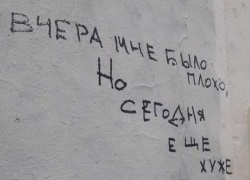 ВЧЕРА МНЕ БЫЛО
ПЛОХО,
НО
СЕГОДНЯ
ЕЩЕ
ХУЖЕ